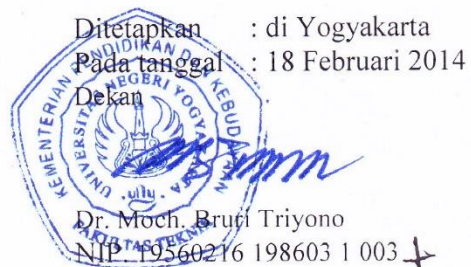 Ditetapkan : di Yogyakarta
Pada tanggal : 18 Februari 2014
Dekan
KEMENTERIAN PENDIDIKAN DAN KEBUDAYAAN
UNIVERSITAS NEGERI YOGYAKARTA
FAKULTAS TEKNIK
Dr. Moch. Bruri Triyono
NIP. 19560216 198603 1 003